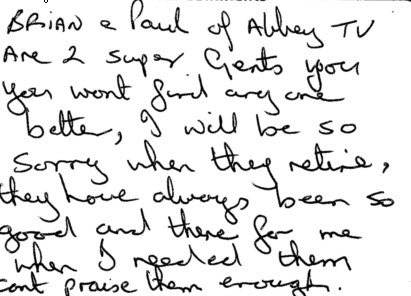 BRIAN & Paul of Abbey TV
Are 2 super Gents you
you wont find any one
better, I will be so
sorry when they retire,
they have always been so
good and there for me
when I needed them
cant praise them enough.